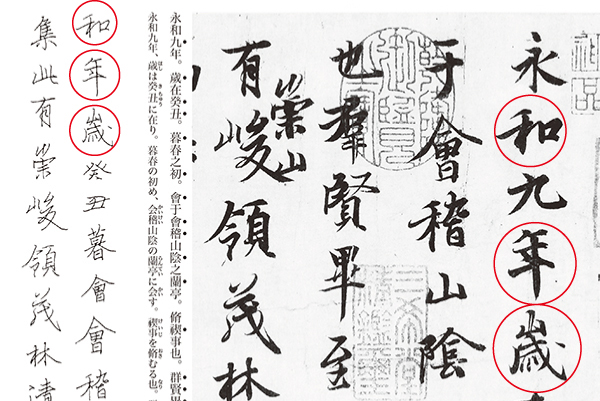 永和九年歲
于會稽山陰
也羣賢畢至
崇山
有峻領茂林
永和九年。歳在癸丑。暮春之初。會于會稽山陰之蘭亭。脩禊事也。群賢畢
永和九年、歳は癸丑に在り。暮春の初め、会稽山陰の蘭亭に会す。禊事を脩むる也。
和年歲癸丑暮會會稽
集此有崇峻領茂林清